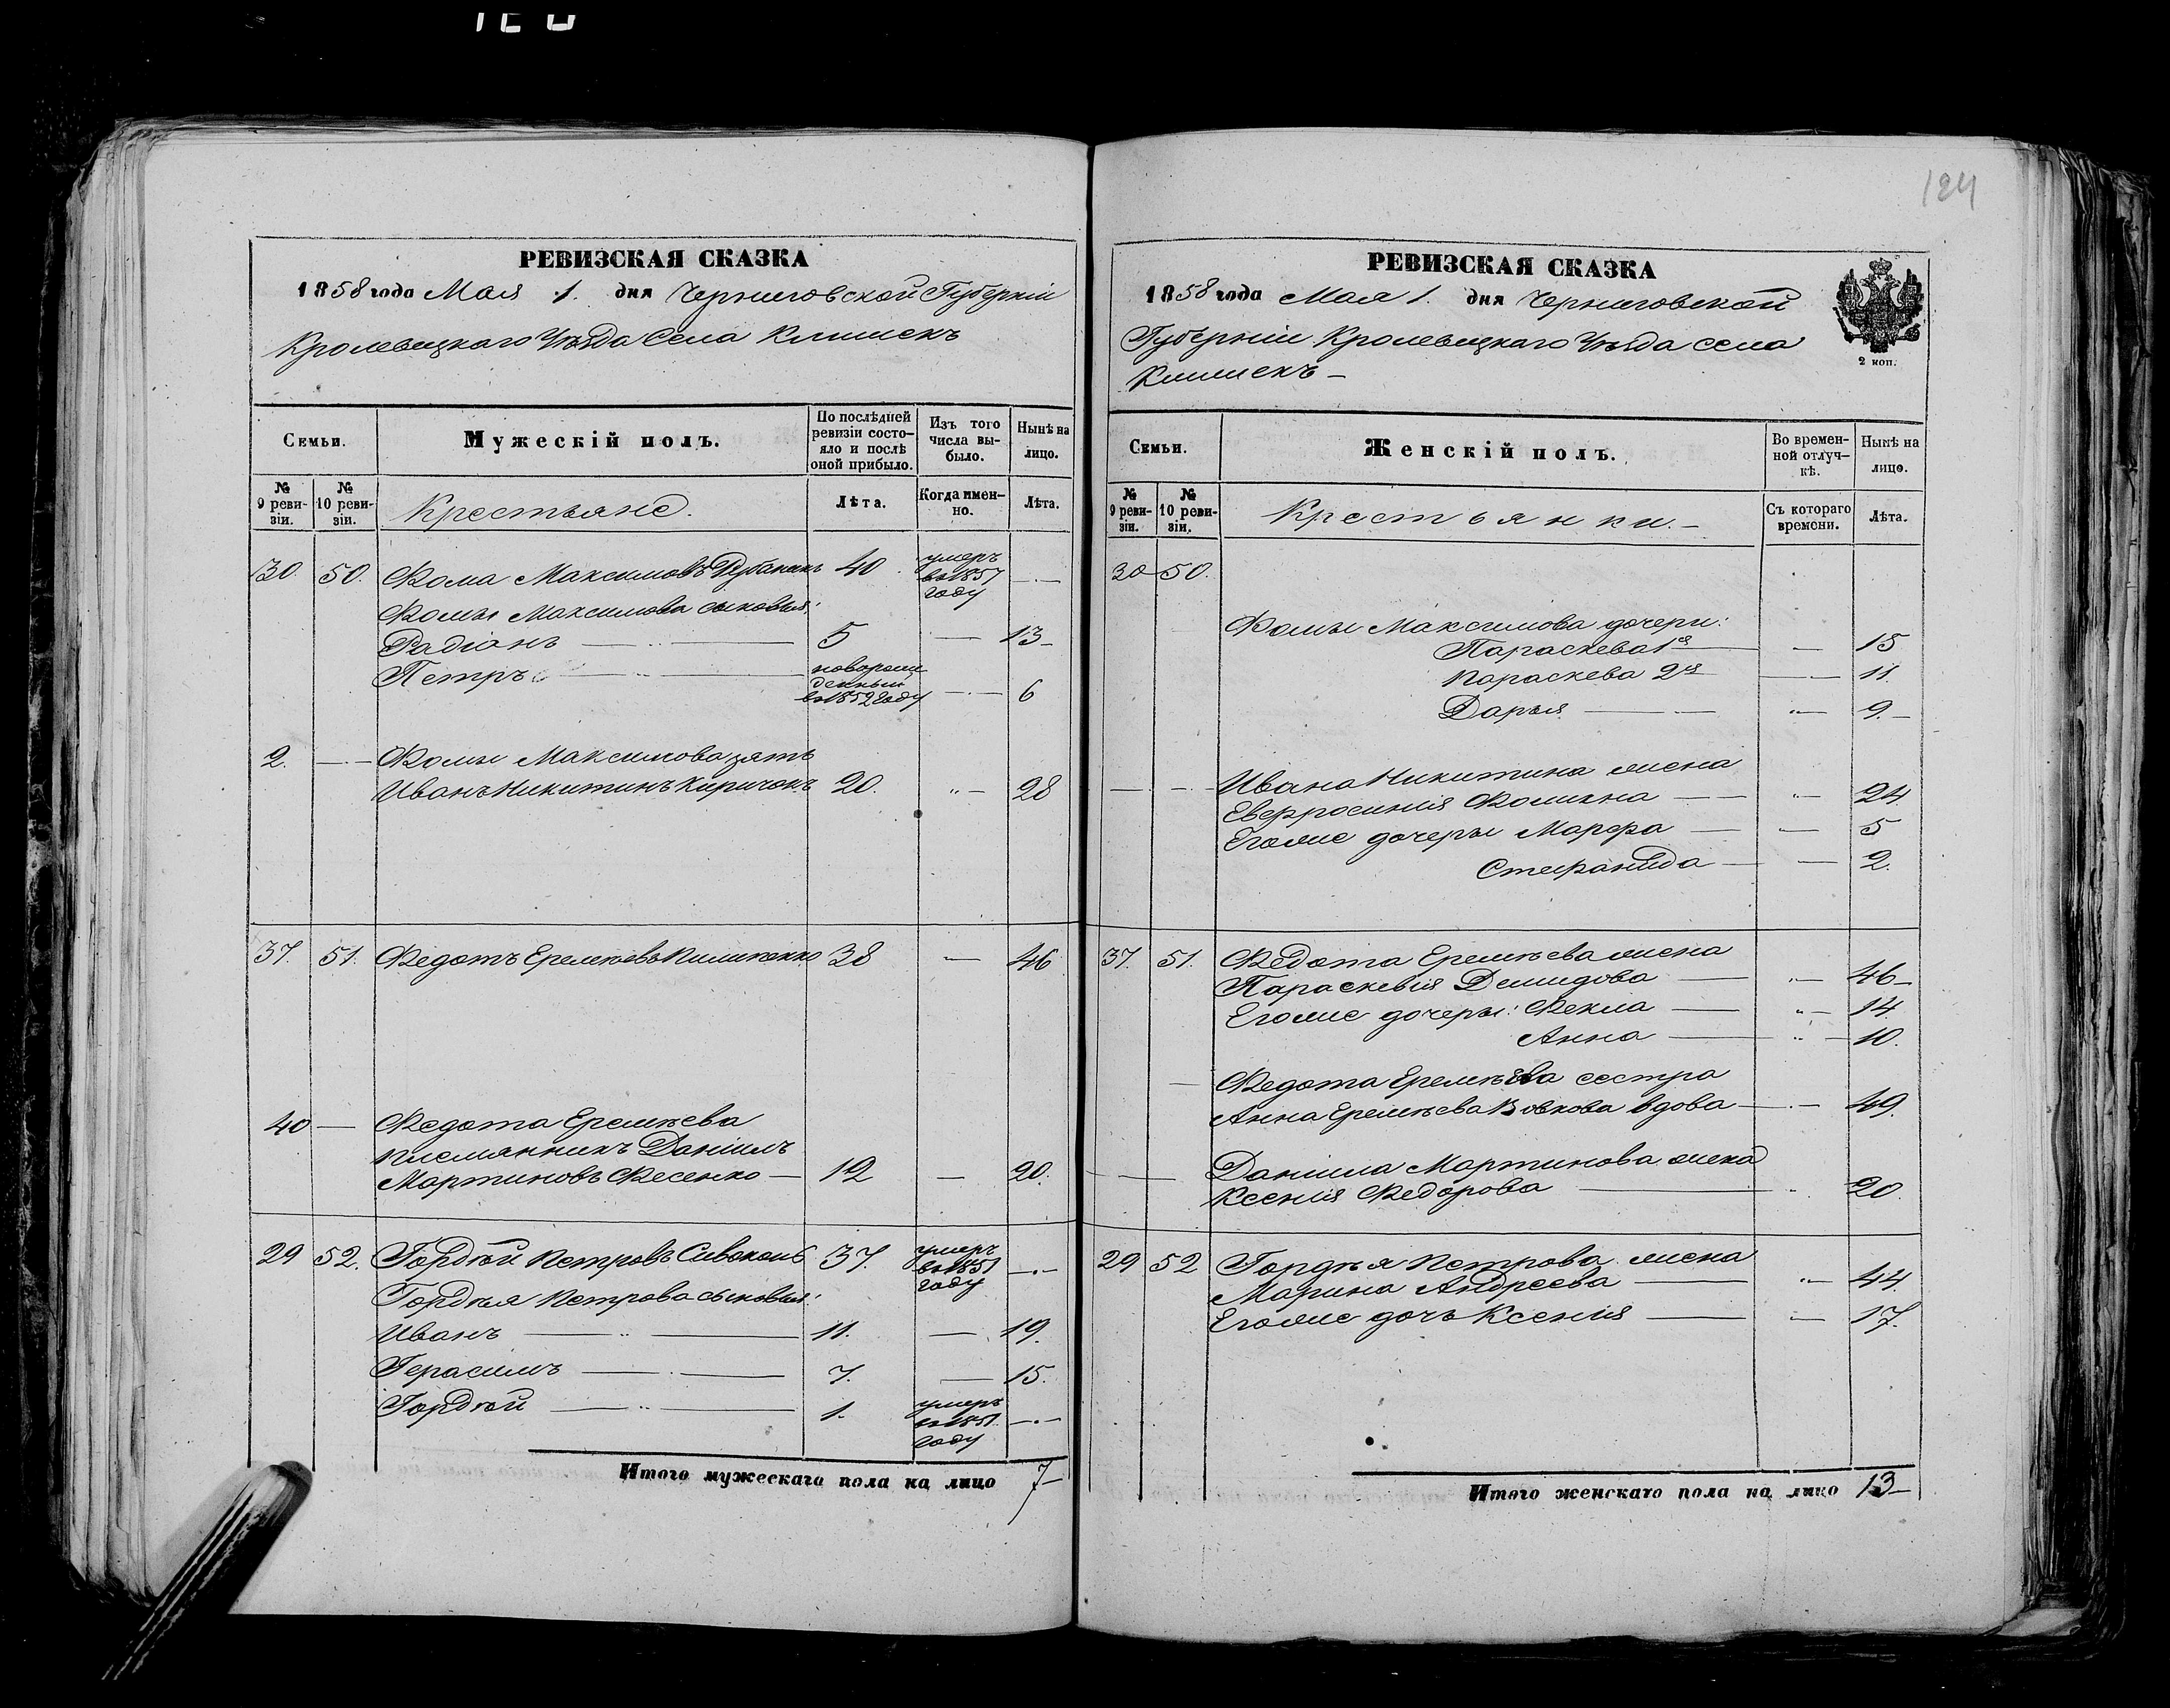 124
РЕВИЗСКАЯ СКАЗКА
1858 года Мая 1. дня Черниговской Губерніи
Кролевецкаго Уѣзда Села Клишекъ
Семьи.
Мужескій полъ.
По послѣдней ревизіи состояло и послѣ оной прибыло.
Изъ того числа выбыло.
Нынѣ на лицо.
№ 9 ревизіи.
№ 10 ревизіи.
Крестьяне.
Лѣта.
Когда именно.
Лѣта.
30. 50. Фома Максимовъ 40 умеръ въ 1857 году —
Фомы Максимова сыновья:
Радіанъ — 5 — 13
Петръ — новорожденный въ 1852 году — 6
2. — Фомы Максимова зять
Иванъ Никитинъ Киричокъ 20. — 28
37. 51. Федотъ Еремѣевъ Пилипенко 38 — 46
40 — Федота Еремѣева
племянникъ Даніилъ
Мартиновъ Фесенко — 12 — 20.
29 52. Гордѣй Петровъ Сивоконь 37. умеръ въ 1851 году —
Гордѣя Петрова сыновья:
Иванъ — 11. — 19.
Герасимъ — 7. — 15.
Гордѣй — 1. умеръ въ 1851. году —
Итого мужескаго пола на лицо 7
РЕВИЗСКАЯ СКАЗКА
1858 года Мая 1. дня Черниговской
Губерніи Кролевецкаго Уѣзда села
Клишекъ —
2 коп.
Семьи.
Женскій полъ.
Во временной отлучкѣ.
Нынѣ на лицо.
№ 9 ревизіи.
№ 10 ревизіи.
Крестьянки. —
Съ котораго времени.
Лѣта.
30 50.
Фомы Максимова дочери:
Параскева 1я — 15
Параскева 2я — 11.
Дарья — 9.
Ивана Никитина жена
Евфросинія Фомина — 24.
Егоже дочеры Марфа — 5
Стефанида — 2.
37. 51. Федота Еремѣева жена
Параскевія Демидова — 46
Егоже дочеры: Фекла — 14.
Анна — 10.
Федота Еремѣева сестра
Анна Еремѣева Вовкова вдова — 49.
Даніила Мартинова жена
Ксенія Федорова — 20.
29 52 Гордѣя Петрова жена
Марина Андреева — 44.
Егоже дочь Ксенія — 17.
Итого женскаго пола на лицо 13